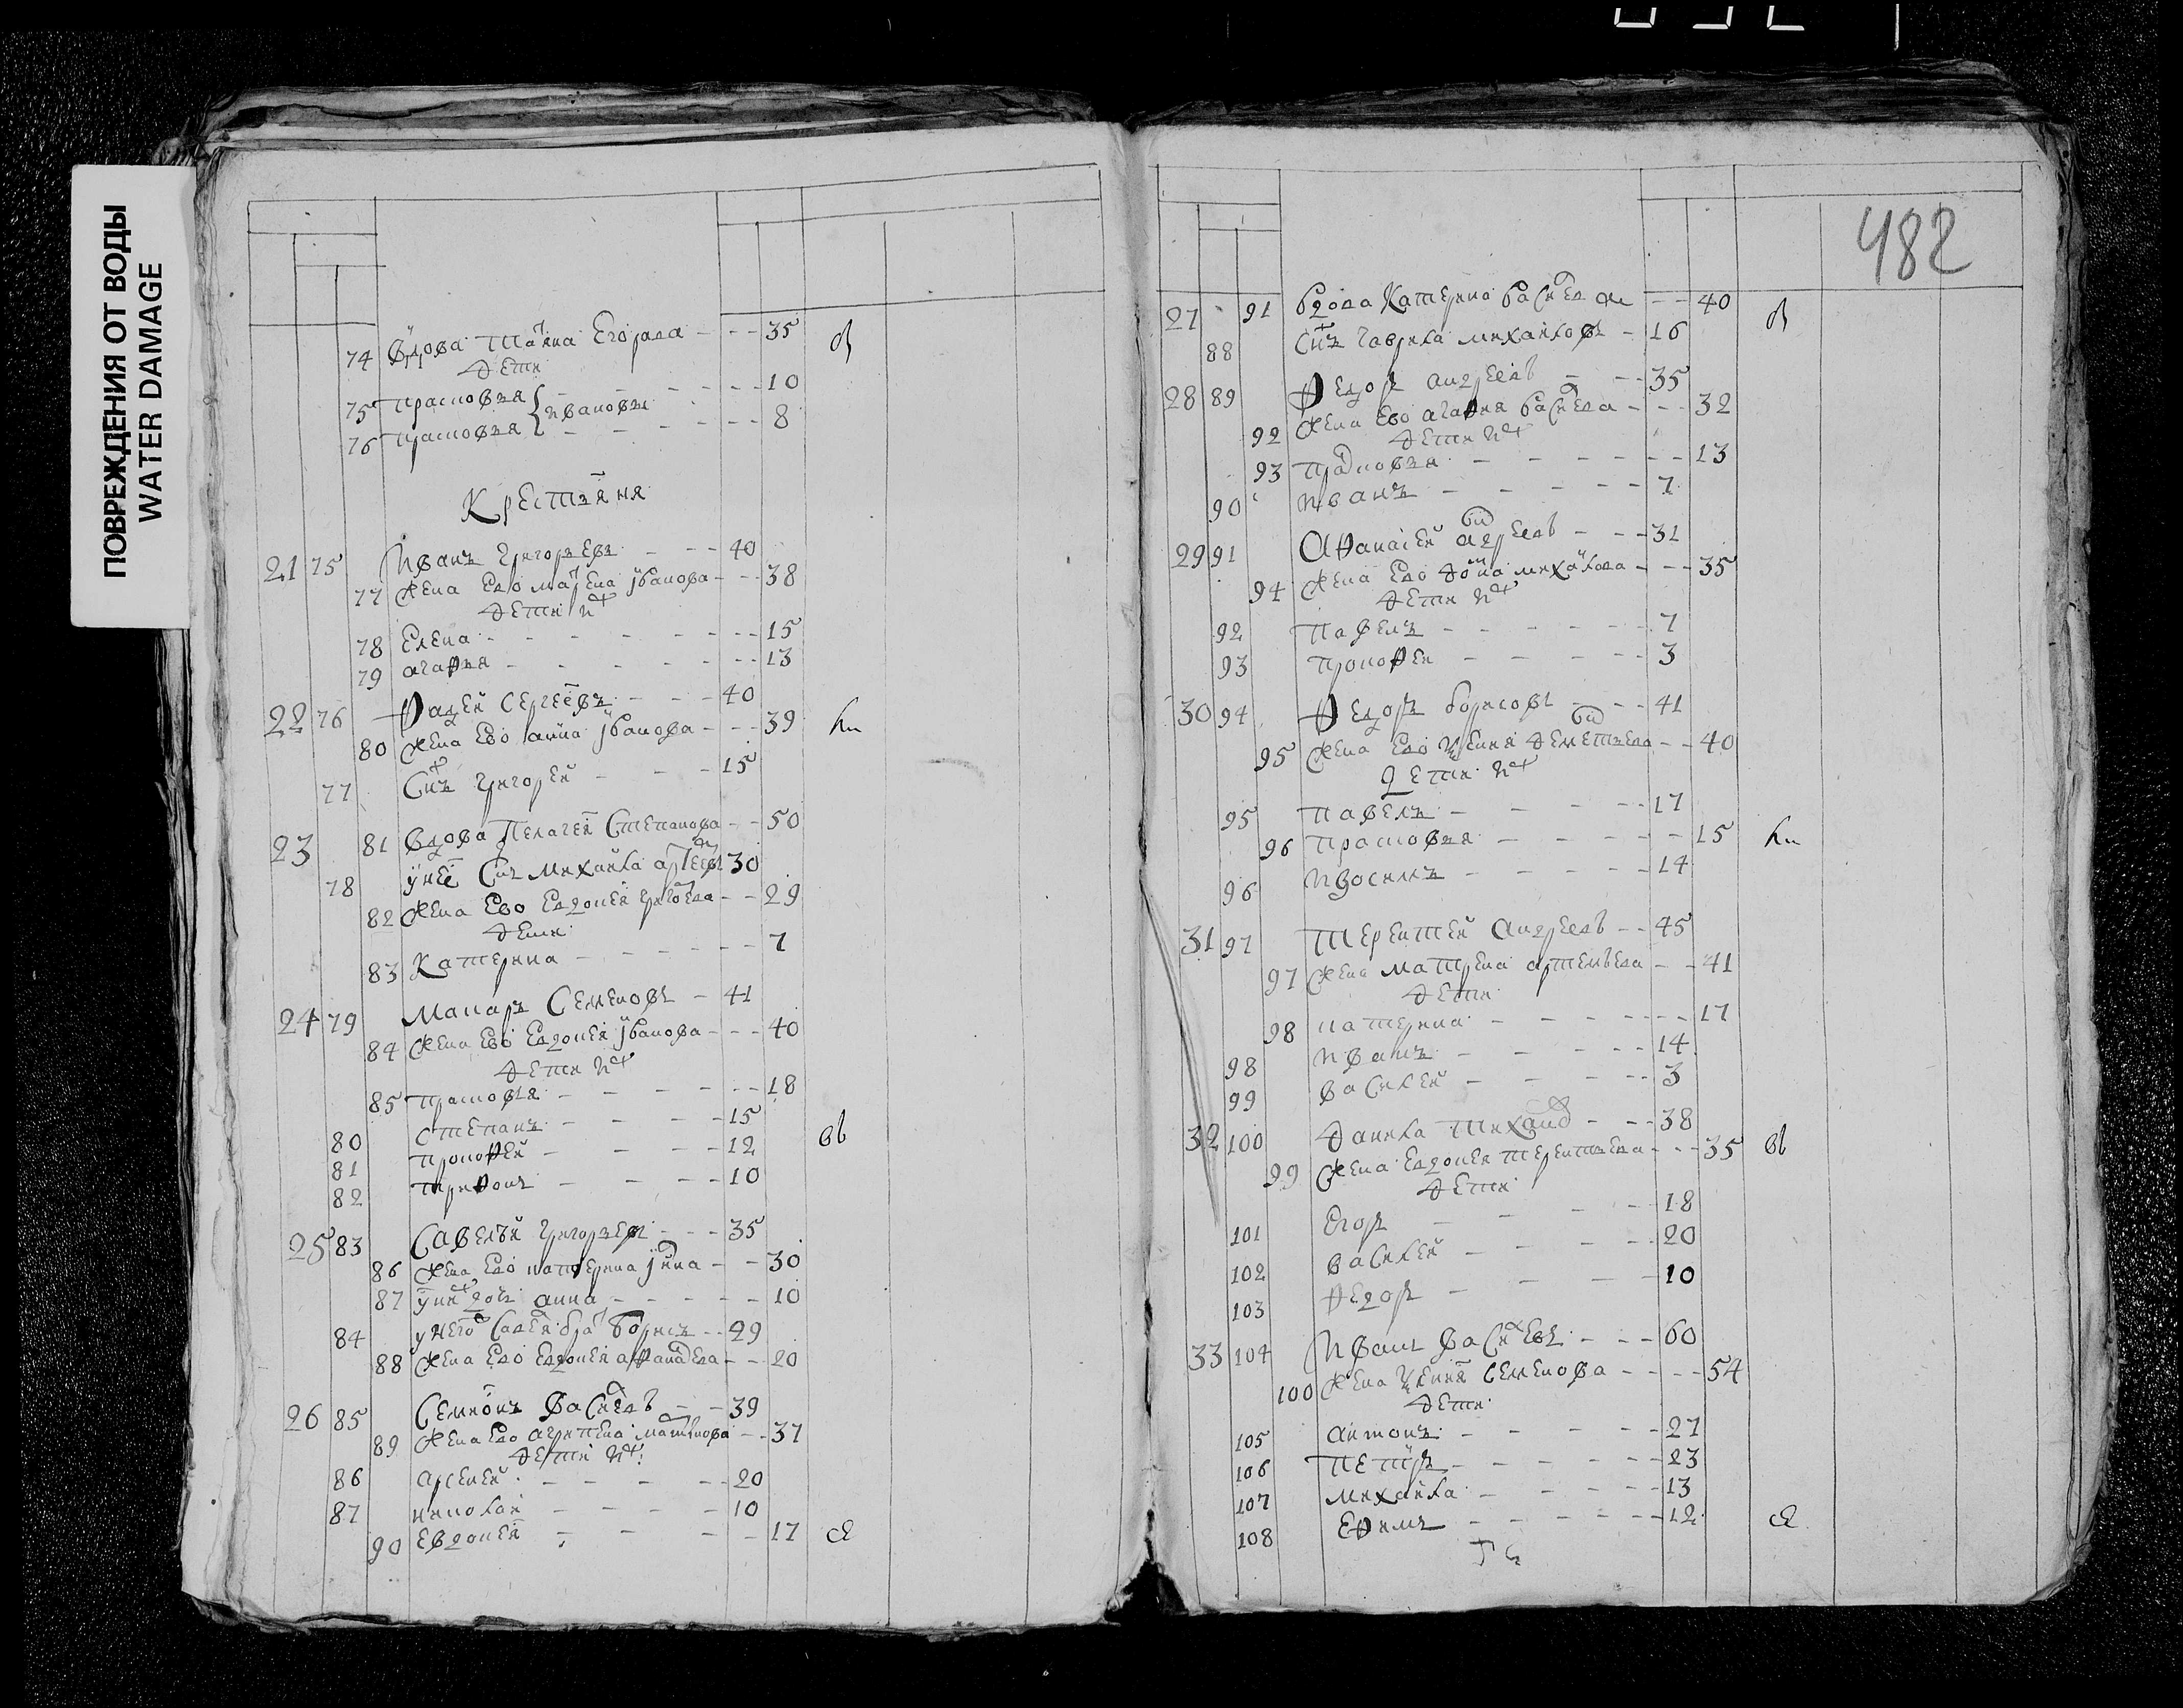 ПОВРЕЖДЕНИЯ ОТ ВОДЫ
WATER DAMAGE
482
74 Вдова Татиана Егорова - - - 35
Дети
75 Прасковья - - - 10
Ивановы
76 Прасковья - - - 8
Крестьяня
21 75 Иванъ Григорьевъ - - - 40
77 жена ево Матрена Иванова - - - 38
дети ихъ
78 Елена - - - 15
79 агафья - - - 13
22 76 Фадей Сергеевъ - - - 40
80 жена ево анна Иванова - - - 39
77 Снъ григорей - - - 15
23 81 Вдова Пелагея Степанова - - 50
78 у нее Снъ михаила 30
82 жена ево Евдокея - - 29
дети
83 Катерина - - - 7
24 79 Макаръ Семеновъ - 41
84 жена ево Евдокея Иванова - - - 40
дети ихъ
85 прасковья - - - 18
80 степанъ - - - 15
81 прокофей - - - 12
82 трифонъ - - - 10
25 83 Савелей григорьевъ - - - 35
86 жена ево катерина - - 30
87 у нихъ дочь анна - - - 10
84 у него Савелья братъ борисъ - - 29
88 жена ево Евдокея - - 20
26 85 Семионъ Василевъ - - 39
89 жена ево агрипена - - 37
дети ихъ
86 арсеней - - - 20
87 николай - - - 10
90 евдокея - - - 17
27 91 вдова Катерина Васильева - - 40
88 Снъ гаврила михайловъ - 16
28 89 Федоръ андреевъ - - - 35
92 жена ево агафия Васильева - - - 32
дети ихъ
93 прасковья - - - 13
90 иванъ - - - 7
29 91 Афанасей андреевъ - - - 31
94 жена ево домна михайлова - - - 35
дети ихъ
92 павелъ - - - 7
93 прокофеи - - - 3
30 94 Федоръ борисовъ - - - 41
95 жена ево дементьева - - 40
дети ихъ
95 павелъ - - - 17
96 прасковья - - - 15
96 изосимъ - - - 14
31 97 Терентей андреевъ - - 45
97 жена матрена артемьева - - 41
дети
98 катерина - - - 17
98 иванъ - - - 14
99 василей - - - 3
32 100 Данила - - - 38
99 жена евдокея терентьева - - - 35
дети
101 егоръ - - - 18
102 василей - - - 20
103 федоръ - - - 10
33 104 Иванъ Васильевъ - - - 60
100 жена семенова - - - 54
дети
105 антонъ - - - 27
106 петръ - - - 23
107 михаила - - - 13
108 ефимъ - - - 12